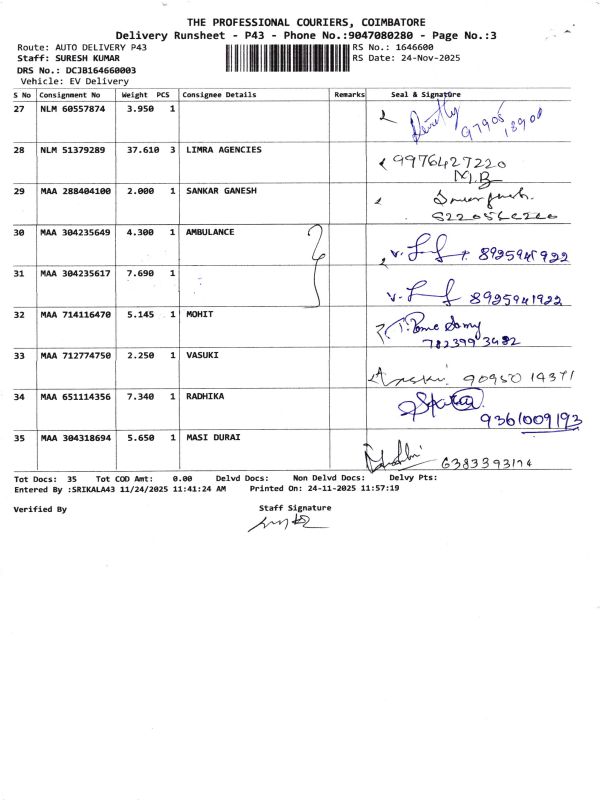 THE PROFESSIONAL COURIERS, COIMBATORE
Delivery Runsheet - P43 - Phone No.:9047080280 - Page No.:3
Route: AUTO DELIVERY P43 RS No.: 1646600
Staff: SURESH KUMAR RS Date: 24-Nov-2025
DRS No.: DCJB164660003
Vehicle: EV Delivery
S No Consignment No Weight PCS Consignee Details Remarks Seal & Signature
27 NLM 60557874 3.950 1
28 NLM 51379289 37.610 3 LIMRA AGENCIES
9976427220
M.B
29 MAA 288404100 2.000 1 SANKAR GANESH
30 MAA 304235649 4.300 1 AMBULANCE
8925941922
31 MAA 304235617 7.690 1
8925941922
32 MAA 714116470 5.145 1 MOHIT
782399 3482
33 MAA 712774750 2.250 1 VASUKI
90950 14371
34 MAA 651114356 7.340 1 RADHIKA
9361009193
35 MAA 304318694 5.650 1 MASI DURAI
6383393174
Tot Docs: 35 Tot COD Amt: 0.00 Delvd Docs: Non Delvd Docs: Delvy Pts:
Entered By :SRIKALA43 11/24/2025 11:41:24 AM Printed On: 24-11-2025 11:57:19
Verified By Staff Signature